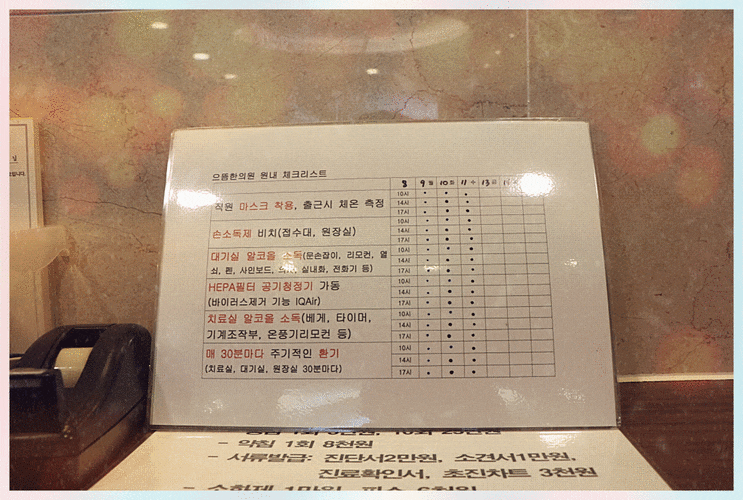 으뜸한의원 원내 체크리스트
8 9월 10화 11수 13금
직원 마스크 착용, 출근시 체온 측정
10시
14시
17시
손소독제 비치(접수대, 원장실)
10시
14시
17시
대기실 알코올 소독(문손잡이, 리모컨, 열
쇠, 펜, 사인보드, 실내화, 전화기 등)
10시
14시
17시
HEPA필터 공기청정기 가동
(바이러스제거 기능 IQAir)
10시
14시
17시
치료실 알코올 소독(베게, 타이머,
기계조작부, 온풍기리모컨 등)
10시
14시
17시
매 30분마다 주기적인 환기
(치료실, 대기실, 원장실 30분마다)
10시
14시
17시
- 약침 1회 8천원
- 서류발급: 진단서2만원, 소견서1만원,
진료확인서, 초진차트 3천원